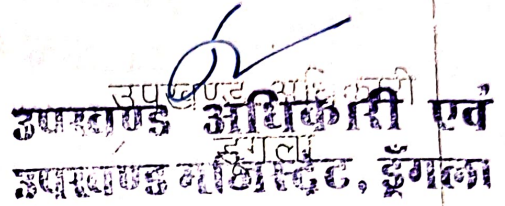 उपखण्ड अधिकारी
उपखण्ड अधिकारी एवं
डूंगला
उपखण्ड मजिस्ट्रेट, डूँगला